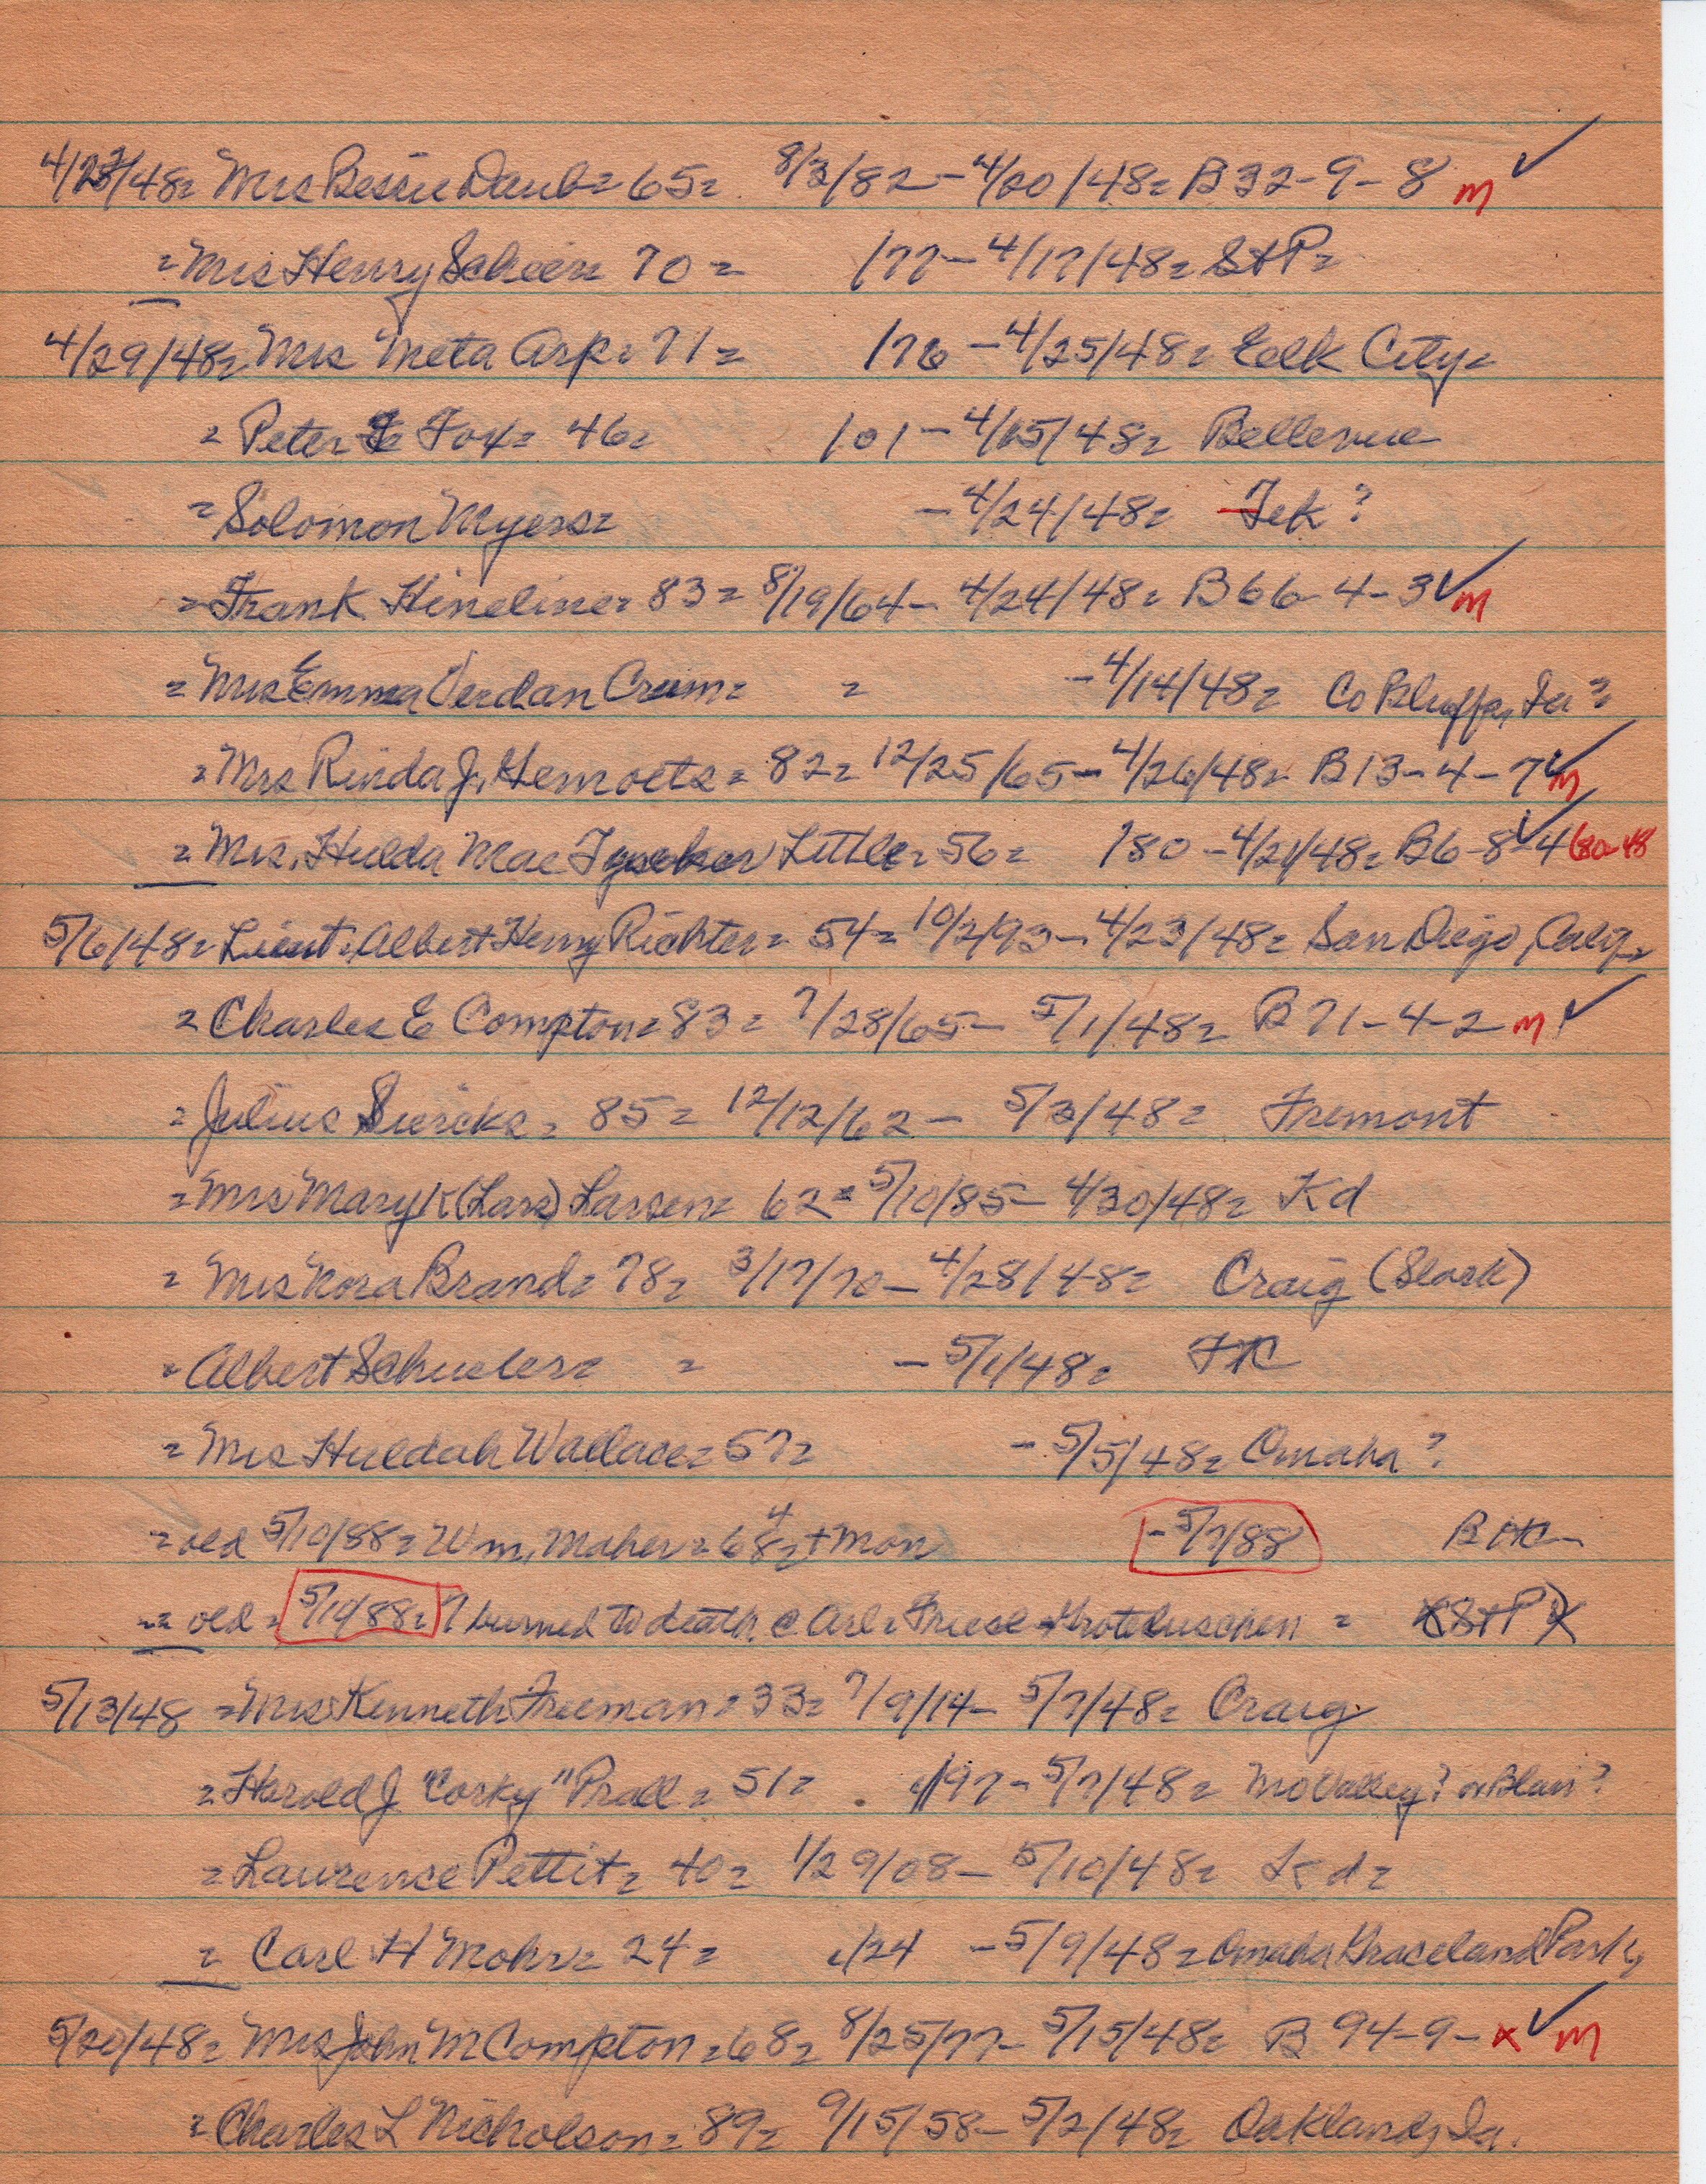 4/22/48= Mrs Bessie Daub= 65= 8/3/82 - 4/20/48= B 32-9-8 m ✓
= Mrs Henry Scheer= 70= /77 - 4/17/48= St P=
4/29/48= Mrs Meta Arp= 71= /76 - 4/25/48= Eelk City=
= Peter Fox= 46= /01 - 4/25/48= Bellevue
= Solomon Myers= - 4/24/48= Tek ?
= Frank Hineline= 83= 8/19/64 - 4/24/48= B 66-4-3 ✓ m
= Mrs Emma Verdan Crum= = - 4/14/48= Co Bluffs, Ia ?
= Mrs Rinda J. Hemoets= 82= 12/25/65 - 4/26/48= B 13-4-7 ✓ m
= Mrs. Hulda Mae Little= 56= /80 - 4/21/48= B6-8-4 ✓
5/6/48= Lieut. Albert Henry Richter= 54= 10/2/93 - 4/23/48= San Diego, Calif=
= Charles E Compton= 83= 7/28/65 - 5/1/48= B 71-4-2 m ✓
= Julius Suercks= 85= 12/12/62 - 5/3/48= Fremont
= Mrs Mary K (Lars) Larsen= 62= 5/10/85 - 4/30/48= Kd
= Mrs Nora Brand= 78= 3/17/70 - 4/28/48= Craig (Slark)
= Albert Schueler= = - 5/1/48= Ft C
= Mrs Huldah Wallace= 57= - 5/5/48= Omaha ?
= old 5/10/88= Wm. Maher= 68= 4 + mon - 5/7/88 B
= old= 5/10/88= 7 burned to death @ Arl= Friese - Grotelueschen = X St P X
5/13/48 = Mrs Kenneth Freeman= 33= 7/9/14 - 5/7/48= Craig
= Harold J "Corky" Prall= 51= /97 - 5/7/48= Mo Valley? or Blair?
= Laurence Pettit= 40= 1/29/08 - 5/10/48= Kd=
= Carl H Mohr= 24= /24 - 5/9/48= Omaha Graceland Park,
5/20/48= Mrs John M Compton= 68= 8/25/77 - 5/15/48= B 94-9- x ✓ m
= Charles L Nicholson= 89= 9/15/58 - 5/2/48= Oakland, Ia.